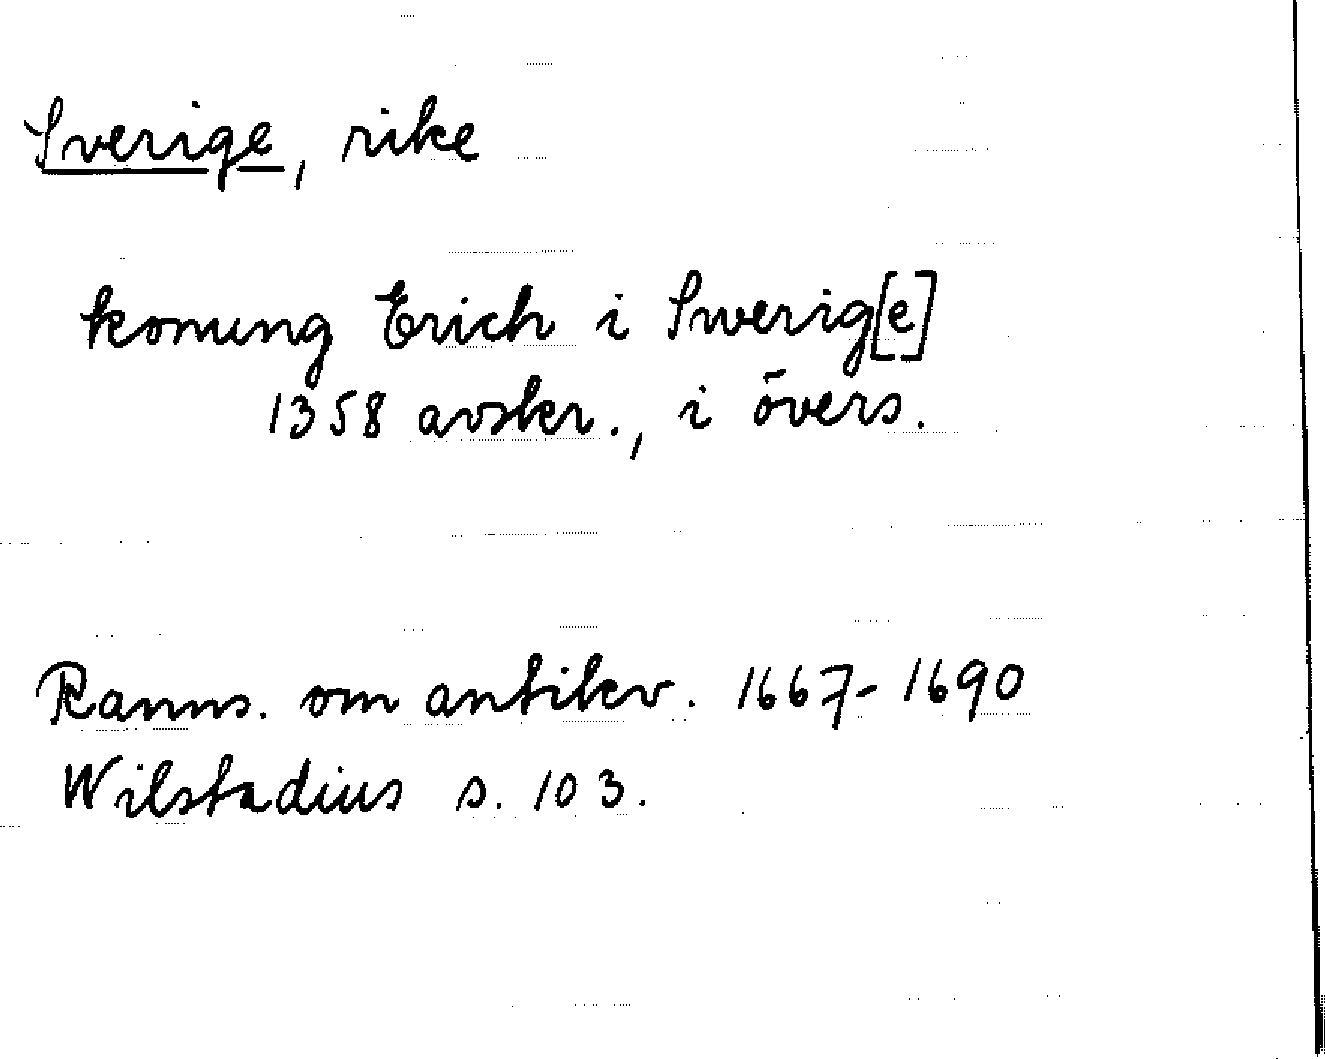 Sverige, rike
konung Erich i Swerig[e]
1358 avskr., i övers.
Ranns. om antikv. 1667-1690
Wilstadius s. 103.